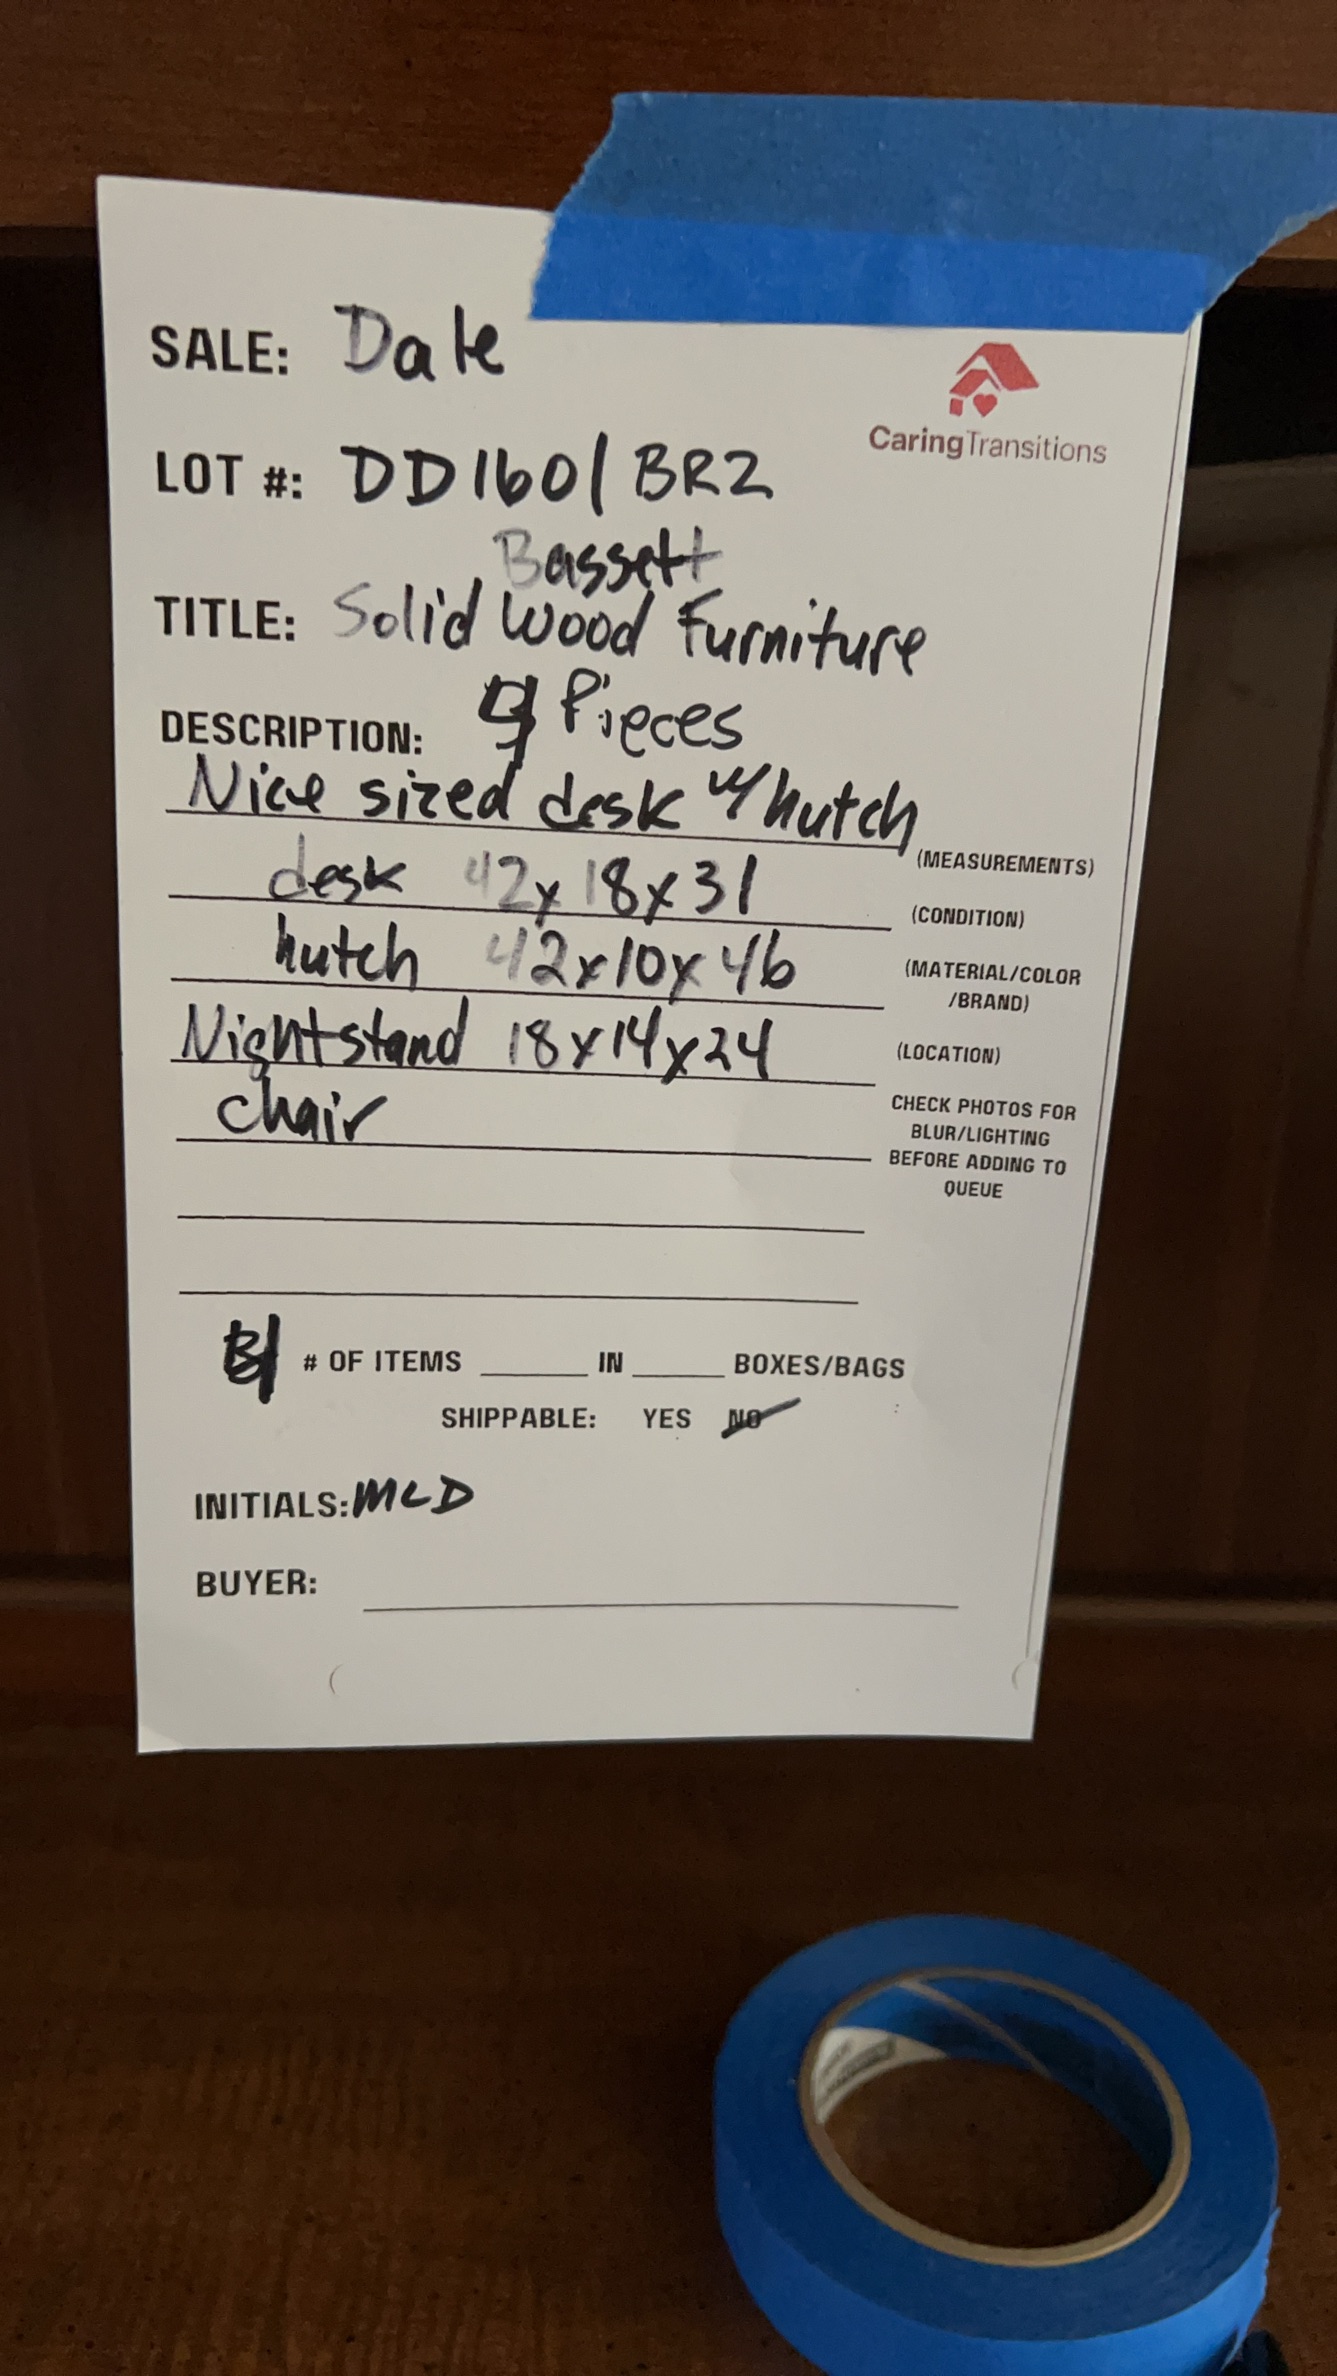 SALE: Dale
CaringTransitions
LOT #: DD160/BR2
Bassett
TITLE: Solid Wood Furniture
4 Pieces
DESCRIPTION:
Nice sized desk w/hutch
(MEASUREMENTS)
desk 42x18x31
(CONDITION)
hutch 42x10x46
(MATERIAL/COLOR
/BRAND)
Nightstand 18x14x24
(LOCATION)
chair
CHECK PHOTOS FOR
BLUR/LIGHTING
BEFORE ADDING TO
QUEUE
# OF ITEMS ______ IN ______ BOXES/BAGS
SHIPPABLE: YES NO
INITIALS: MLD
BUYER: